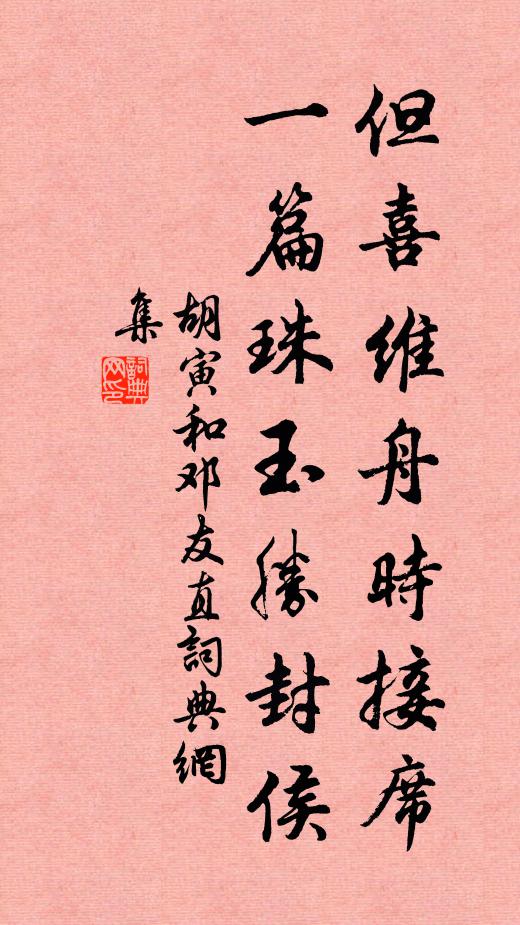 但喜維舟時接席
一篇珠玉勝封侯
胡寅和邓友直詞典網
集
詞典
网印